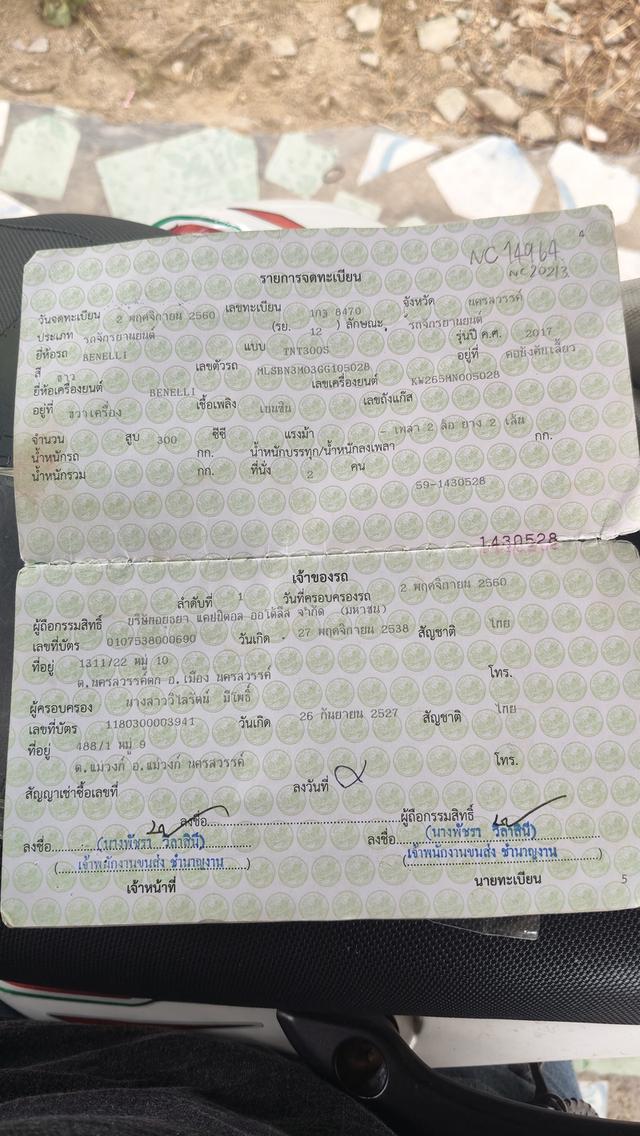 4
NC 14964
NC 20213
รายการจดทะเบียน
วันจดทะเบียน 2 พฤศจิกายน 2560 เลขทะเบียน 1กง 8470 จังหวัด นครสวรรค์
ประเภท รถจักรยานยนต์ (รย. 12 ) ลักษณะ รถจักรยานยนต์
ยี่ห้อรถ BENELLI แบบ TNT300S รุ่นปี ค.ศ. 2017
สี ขาว เลขตัวรถ MLSBN3M03GG105028 อยู่ที่ คอบังคับเลี้ยว
ยี่ห้อเครื่องยนต์ BENELLI เลขเครื่องยนต์ KW265MN005028
อยู่ที่ ขวาเครื่อง เชื้อเพลิง เบนซิน เลขถังแก๊ส
จำนวน สูบ 300 ซีซี แรงม้า - เพลา 2 ล้อ ยาง 2 เส้น
น้ำหนักรถ กก. น้ำหนักบรรทุก/น้ำหนักลงเพลา กก.
น้ำหนักรวม กก. ที่นั่ง 2 คน
59-1430528
1430528
เจ้าของรถ
ลำดับที่ 1 วันที่ครอบครองรถ 2 พฤศจิกายน 2560
ผู้ถือกรรมสิทธิ์ บริษัทอยุธยา แคปปิตอล ออโต้ลีส จำกัด (มหาชน)
เลขที่บัตร 0107538000690 วันเกิด 27 พฤศจิกายน 2538 สัญชาติ ไทย
ที่อยู่ 1311/22 หมู่ 10 โทร.
ต.นครสวรรค์ตก อ.เมือง นครสวรรค์
ผู้ครอบครอง นางสาววิไลรัตน์ มีโพธิ์
เลขที่บัตร 1180300003941 วันเกิด 26 กันยายน 2527 สัญชาติ ไทย
ที่อยู่ 488/1 หมู่ 9
ต.แม่วงก์ อ.แม่วงก์ นครสวรรค์ โทร.
สัญญาเช่าซื้อเลขที่ ลงวันที่
ลงชื่อ ผู้ถือกรรมสิทธิ์
ลงชื่อ (นางพัชรา วิลาสินี) ลงชื่อ (นางพัชรา วิลาสินี)
(เจ้าพนักงานขนส่ง ชำนาญงาน) (เจ้าพนักงานขนส่ง ชำนาญงาน)
เจ้าหน้าที่ นายทะเบียน
5